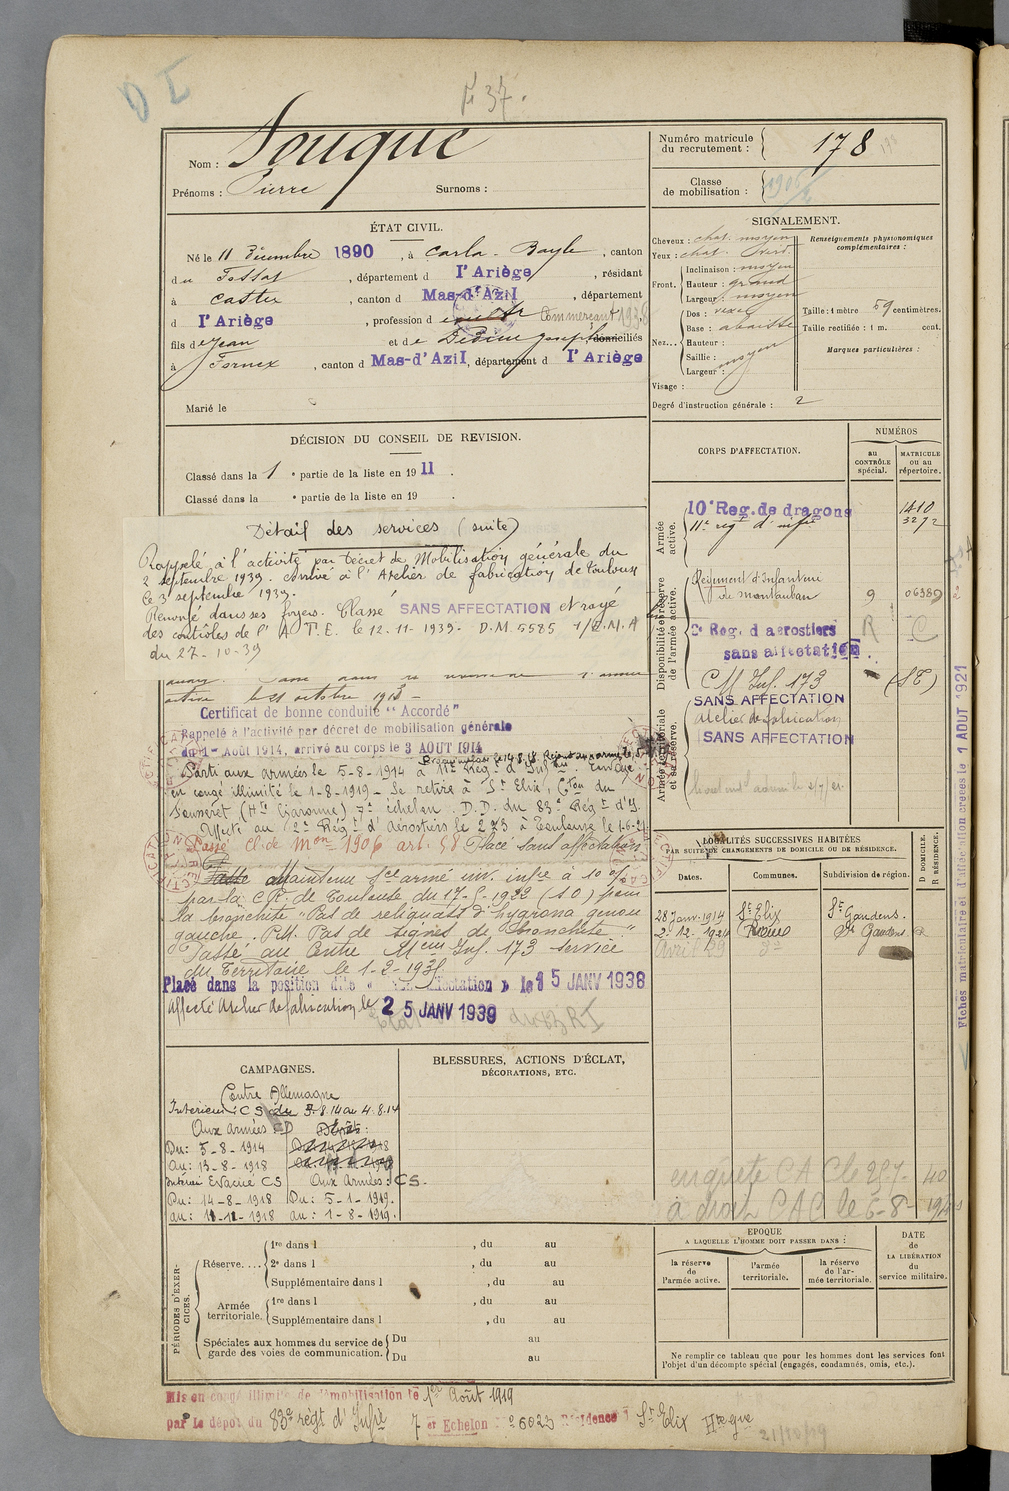 D I
F 37.
Nom : Fouque
Prénoms : Pierre Surnoms :
Numéro matricule du recrutement : 178
Classe de mobilisation : 1906/2
ÉTAT CIVIL.
Né le 11 Décembre 1890, à Carla-Bayle, canton
du Fossat, département d l'Ariège, résidant
à Castex, canton d Mas-d'Azil, département
d l'Ariège, profession d cult Commerçant 1938
fils de Jean et de Dédieu Joseph domiciliés
à Fornex, canton d Mas-d'Azil, département d l'Ariège
Marié le
SIGNALEMENT.
Cheveux : chat. moyen
Yeux : chat. vert.
Front. Inclinaison : moyen
Hauteur : grand
Largeur : moyen
Nez... Dos : vexe
Base : abaissé
Hauteur :
Saillie : moyen
Largeur :
Visage :
Degré d'instruction générale : 2
Renseignements physionomiques complémentaires :
Taille : 1 mètre 59 centimètres.
Taille rectifiée : 1 m. cent.
Marques particulières :
DÉCISION DU CONSEIL DE REVISION.
Classé dans la 1 e partie de la liste en 1911.
Classé dans la e partie de la liste en 19 .
Détail des services (suite)
Rappelé à l'activité par décret de Mobilisation générale du
2 septembre 1939. Arrivé à l'Atelier de fabrication de Toulouse
le 3 septembre 1939.
Renvoyé dans ses foyers. Classé SANS AFFECTATION et rayé
des contrôles de l'A.T.E. le 12-11-1939. D.M. 5585 1/E.M.A
du 27-10-39
active le 31 octobre 1913 -
Certificat de bonne conduite "Accordé"
Rappelé à l'activité par décret de mobilisation générale
du 1er Août 1914, arrivé au corps le 3 AOUT 1914
Parti aux armées le 5-8-1914 à 11e Rég. d'Inf. Envoyé
en congé illimité le 1-8-1919 - Se retire à St Elix, Cton du
Fousseret (Hte Garonne) 7e échelon. D.D. du 83e Régt d'I.
Affecté au 2e Régt d'Aérostiers le 223 à Toulouse le 1-6-21
Passé Cl. de Mon 1906 art. 58 Placé sans affectation
Passé Maintenu sce armé inv. infre à 10 %
par la C.R. de Toulouse du 17-5-1922 (SO) pour
la bronchite "Pas de reliquats d'hygroma genou
gauche. P.M. Pas de signes de bronchite."
Passé au Centre Meur Inf. 173 service
du Territoire le 1-2-1928.
Placé dans la position dite « Sans affectation » le 15 JANV 1938
Affecté Atelier de fabrication le 25 JANV 1939
CORPS D'AFFECTATION.
NUMÉROS
au CONTRÔLE spécial.
MATRICULE ou au répertoire.
Armée active.
10e Reg. de dragons 1410
11e regt d'infie 3272
Disponibilité et réserve de l'armée active.
Régiment d'Infanterie de Montauban 9 06389
2e Reg. d'aerostiers R IC
sans affectation
C M Inf. 173 (ST)
Armée territoriale et sa réserve.
SANS AFFECTATION
Atelier de fabrication
SANS AFFECTATION
LOCALITÉS SUCCESSIVES HABITÉES
PAR SUITE DE CHANGEMENTS DE DOMICILE OU DE RÉSIDENCE.
Dates. Communes. Subdivision de région. D DOMICILE. R RÉSIDENCE.
28 Janv. 1914 St Elix St Gaudens.
2.12.1924 St Gaudens R
Avril 29
Fiches matriculaire et d'affection créées le 1 AOUT 1921
enquête CAC le 25-7-40
à droit CAC le 6-8-1940
CAMPAGNES.
Contre Allemagne
Intérieur : CS du 3.8.14 au 4.8.14
Aux armées : D
Du : 5-8-1914
au : 13-8-1918
Intérieur Evacué CS
Du : 14-8-1918
au : 11-11-1918
Aux Armées : CS.
Du : 5-1-1919.
au : 1-8-1919.
BLESSURES, ACTIONS D'ÉCLAT,
DÉCORATIONS, ETC.
PÉRIODES D'EXERCICES.
Réserve.... 1re dans l , du au
2e dans l , du au
Supplémentaire dans l , du au
Armée territoriale. 1re dans l , du au
Supplémentaire dans l , du au
Spéciales aux hommes du service de garde des voies de communication. Du au
Du au
EPOQUE
A LAQUELLE L'HOMME DOIT PASSER DANS :
la réserve de l'armée active.
l'armée territoriale.
la réserve de l'armée territoriale.
DATE de LA LIBÉRATION du service militaire.
Ne remplir ce tableau que pour les hommes dont les services font
l'objet d'un décompte spécial (engagés, condamnés, omis, etc.).
Mis en congé illimité de démobilisation le 1er Août 1919
par le dépôt du 83e régt d'Infie 7 er Echelon 26023 Résidence St Elix Hte Gne